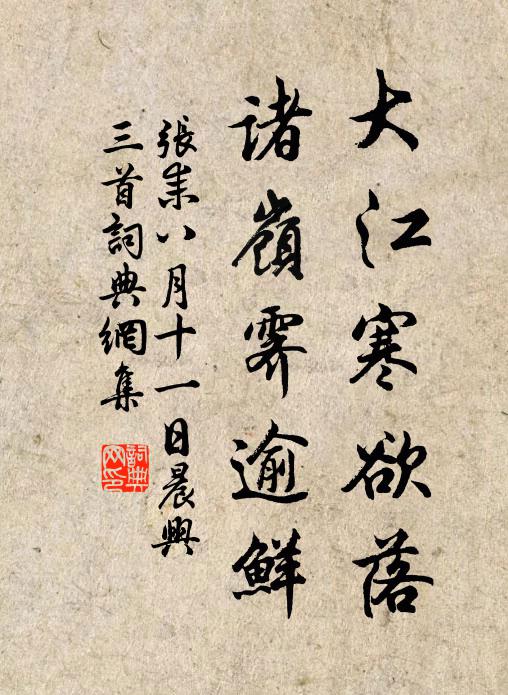 大江寒欲落
诸嶺霽逾鮮
張耒八月十一日晨興
三首詞典網集
詞典网印